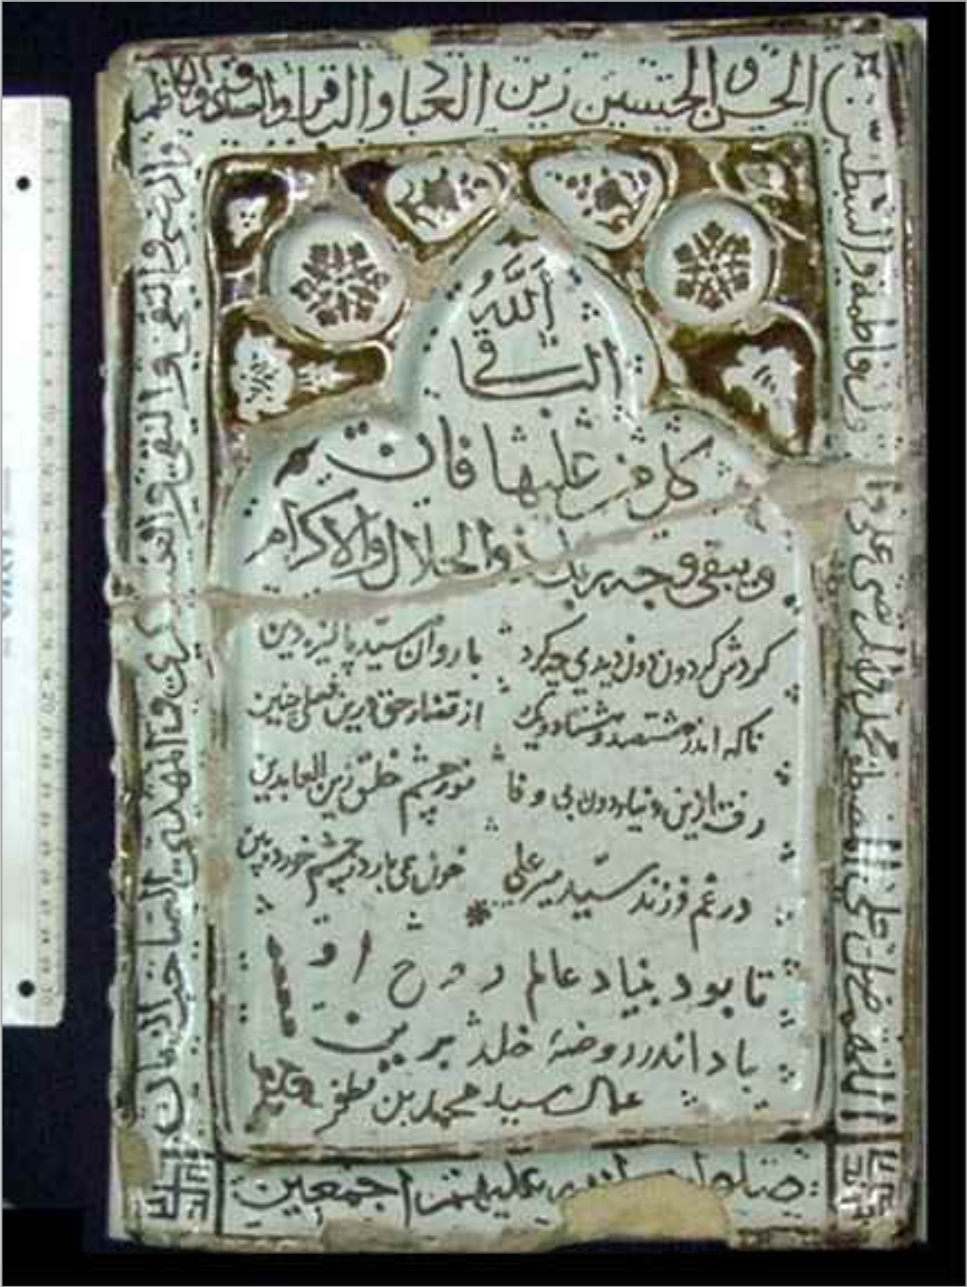 اللهم صل علی المصطفی محمد والمرتضی علی و البتول فاطمة و السبطین
الحسن و الحسین زین العباد و الباقر و الصادق و الکاظم
و الرضی و التقی و النقی و العسکری و المهدی صاحب الزمان
صلوات الله علیهم اجمعین
اَللّٰه
الباقی
کل من علیها فان
و یبقی وجه ربک ذو الجلال و الاکرام
کردش کردون دون دیدی چه کرد با روان سیّد پاکیزه دین
ناکه اندر هشتصد و هشتاد و یک از قضاء حق درین فصلی چنین
رفت ازین دنیاء دون بی وفا نور چشم خلق زین العابدین
در غم فرزند سیّد میر علی خون همی بارد ز چشم خورده بین
تا بود بنیاد عالم روح او
باد اندر روضهٔ خلد برین
عمل سید محمد بن مظفر